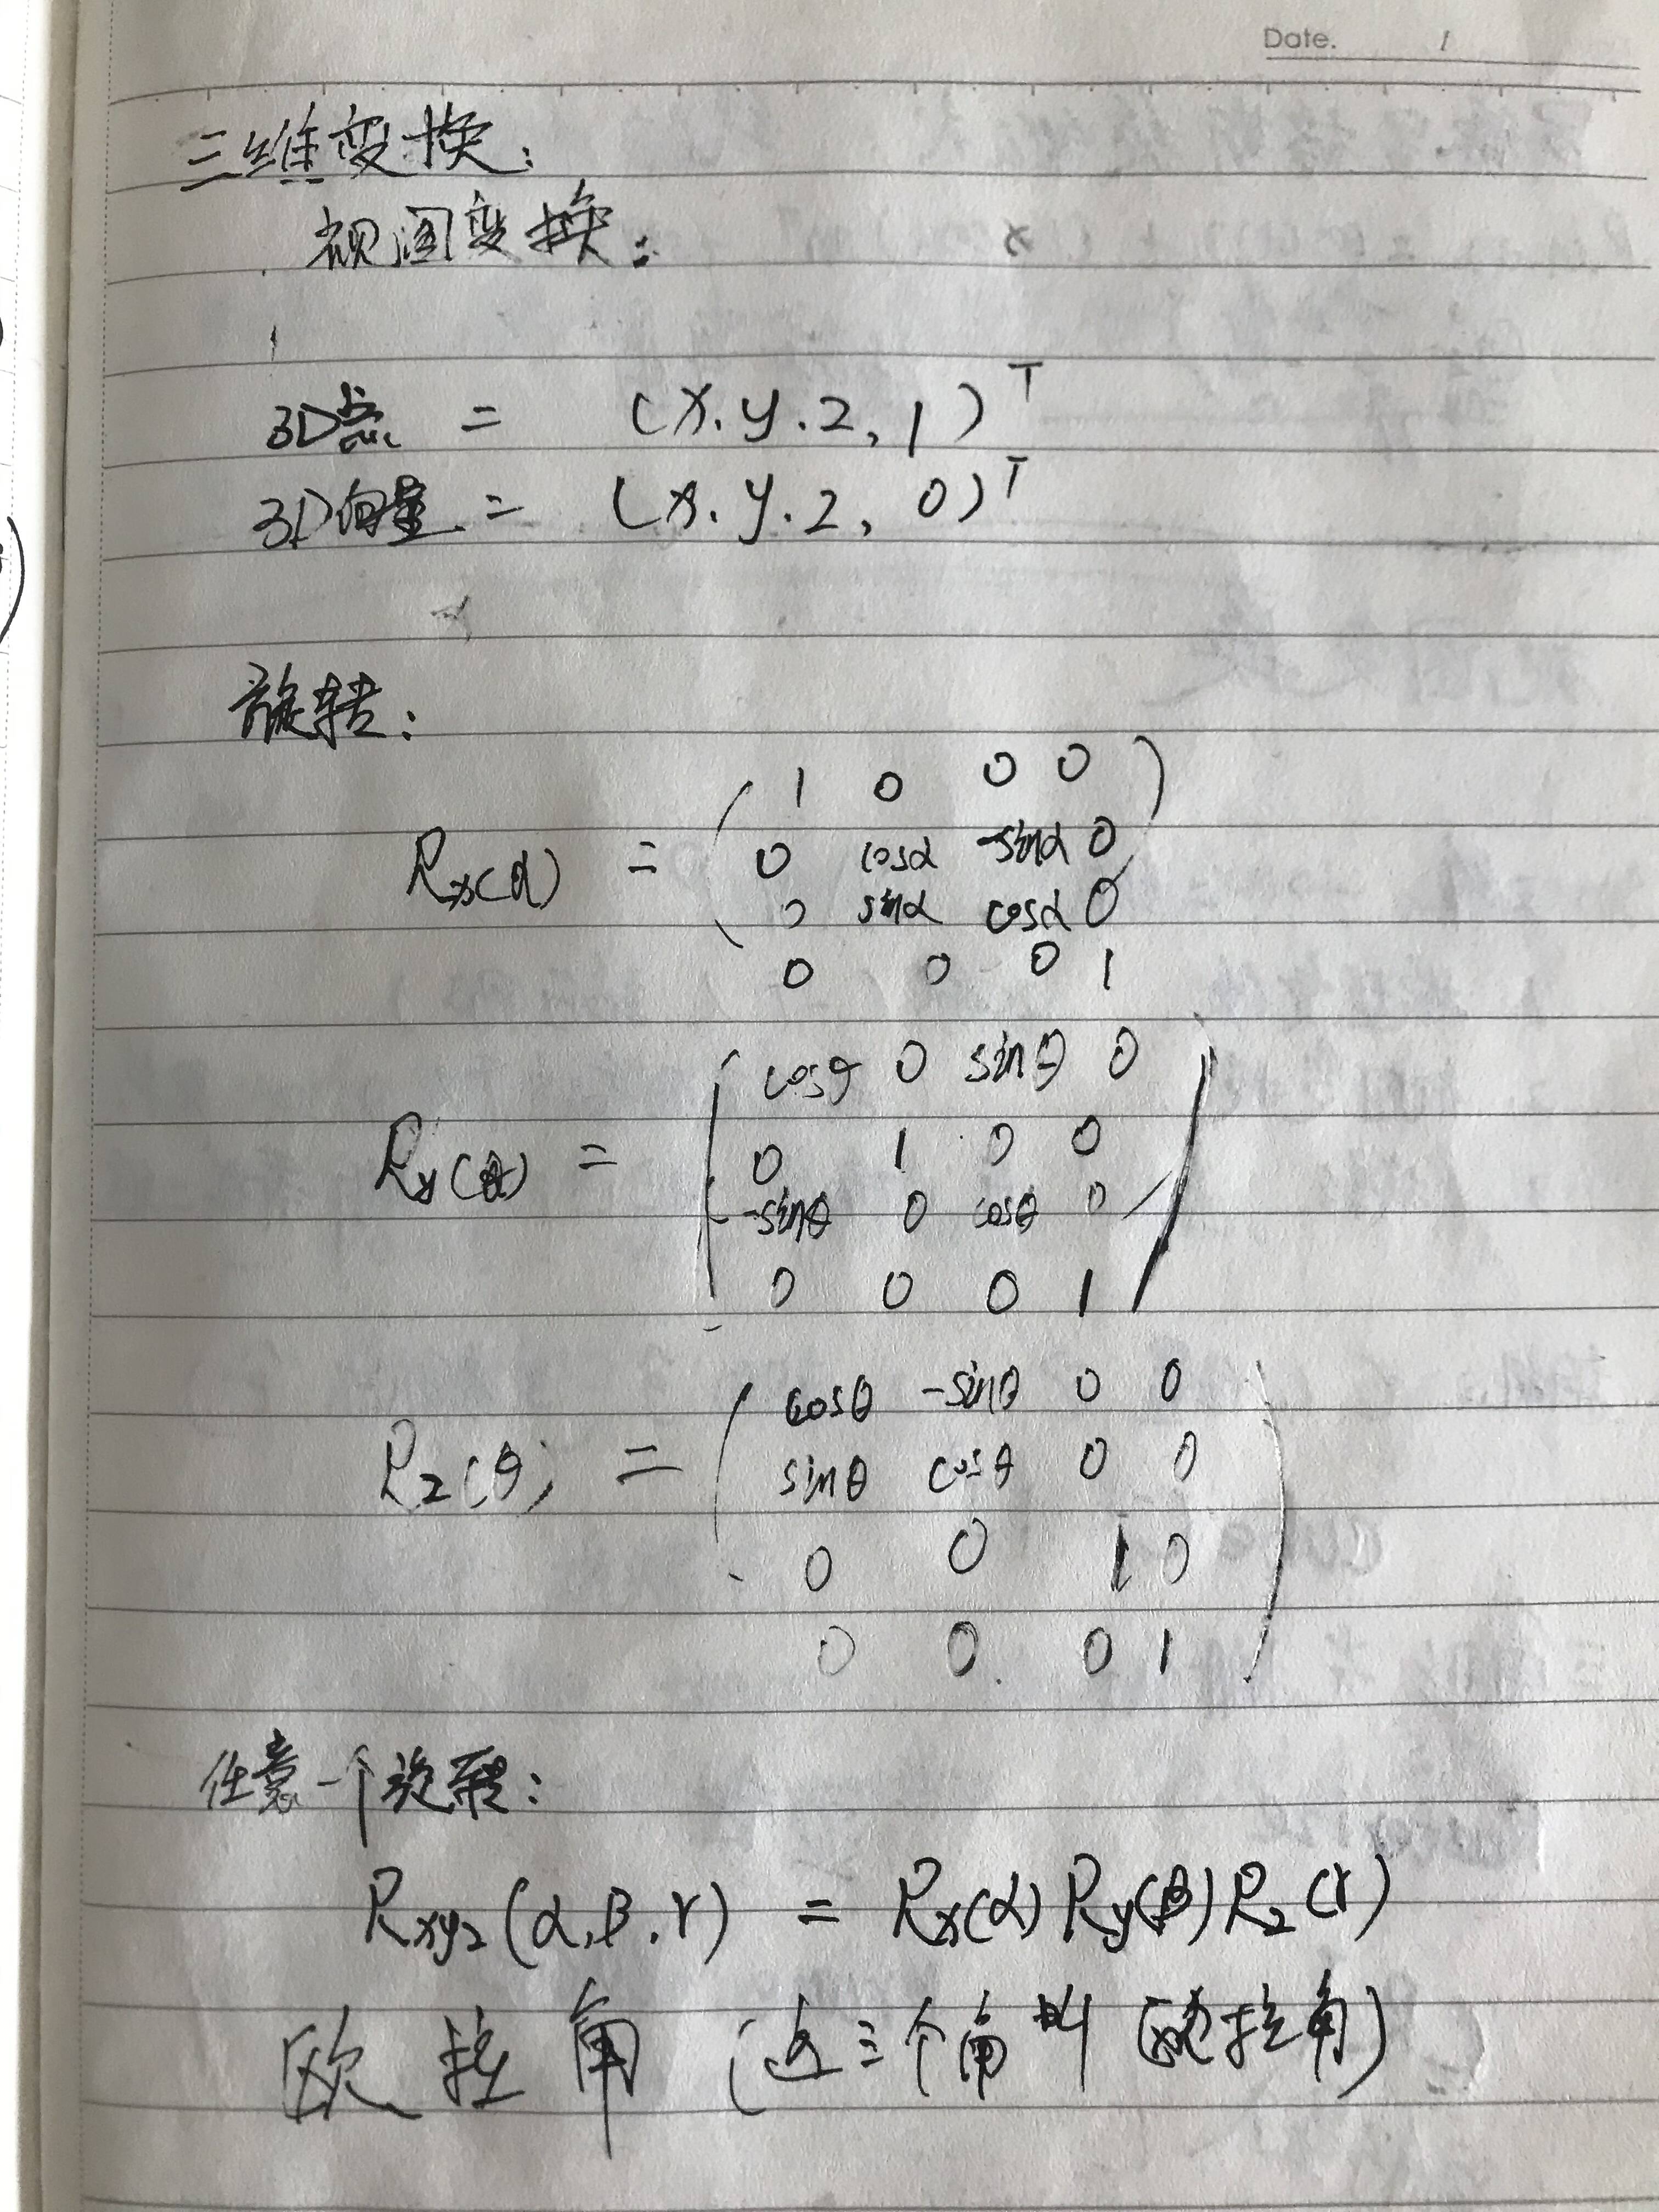 Date. /
三维变换:
视图变换:
3D点 = (x.y.z,1)ᵀ
3D向量 = (x.y.z,0)ᵀ
旋转:
1 0 0 0
Rx(α) = 0 cosα -sinα 0
0 sinα cosα 0
0 0 0 1
cosθ 0 sinθ 0
Ry(θ) = 0 1 0 0
-sinθ 0 cosθ 0
0 0 0 1
cosθ -sinθ 0 0
Rz(θ) = sinθ cosθ 0 0
0 0 1 0
0 0 0 1
任意一个旋转:
Rxyz(α,β.γ) = Rx(α)Ry(β)Rz(γ)
欧拉角 (这三个角叫欧拉角)